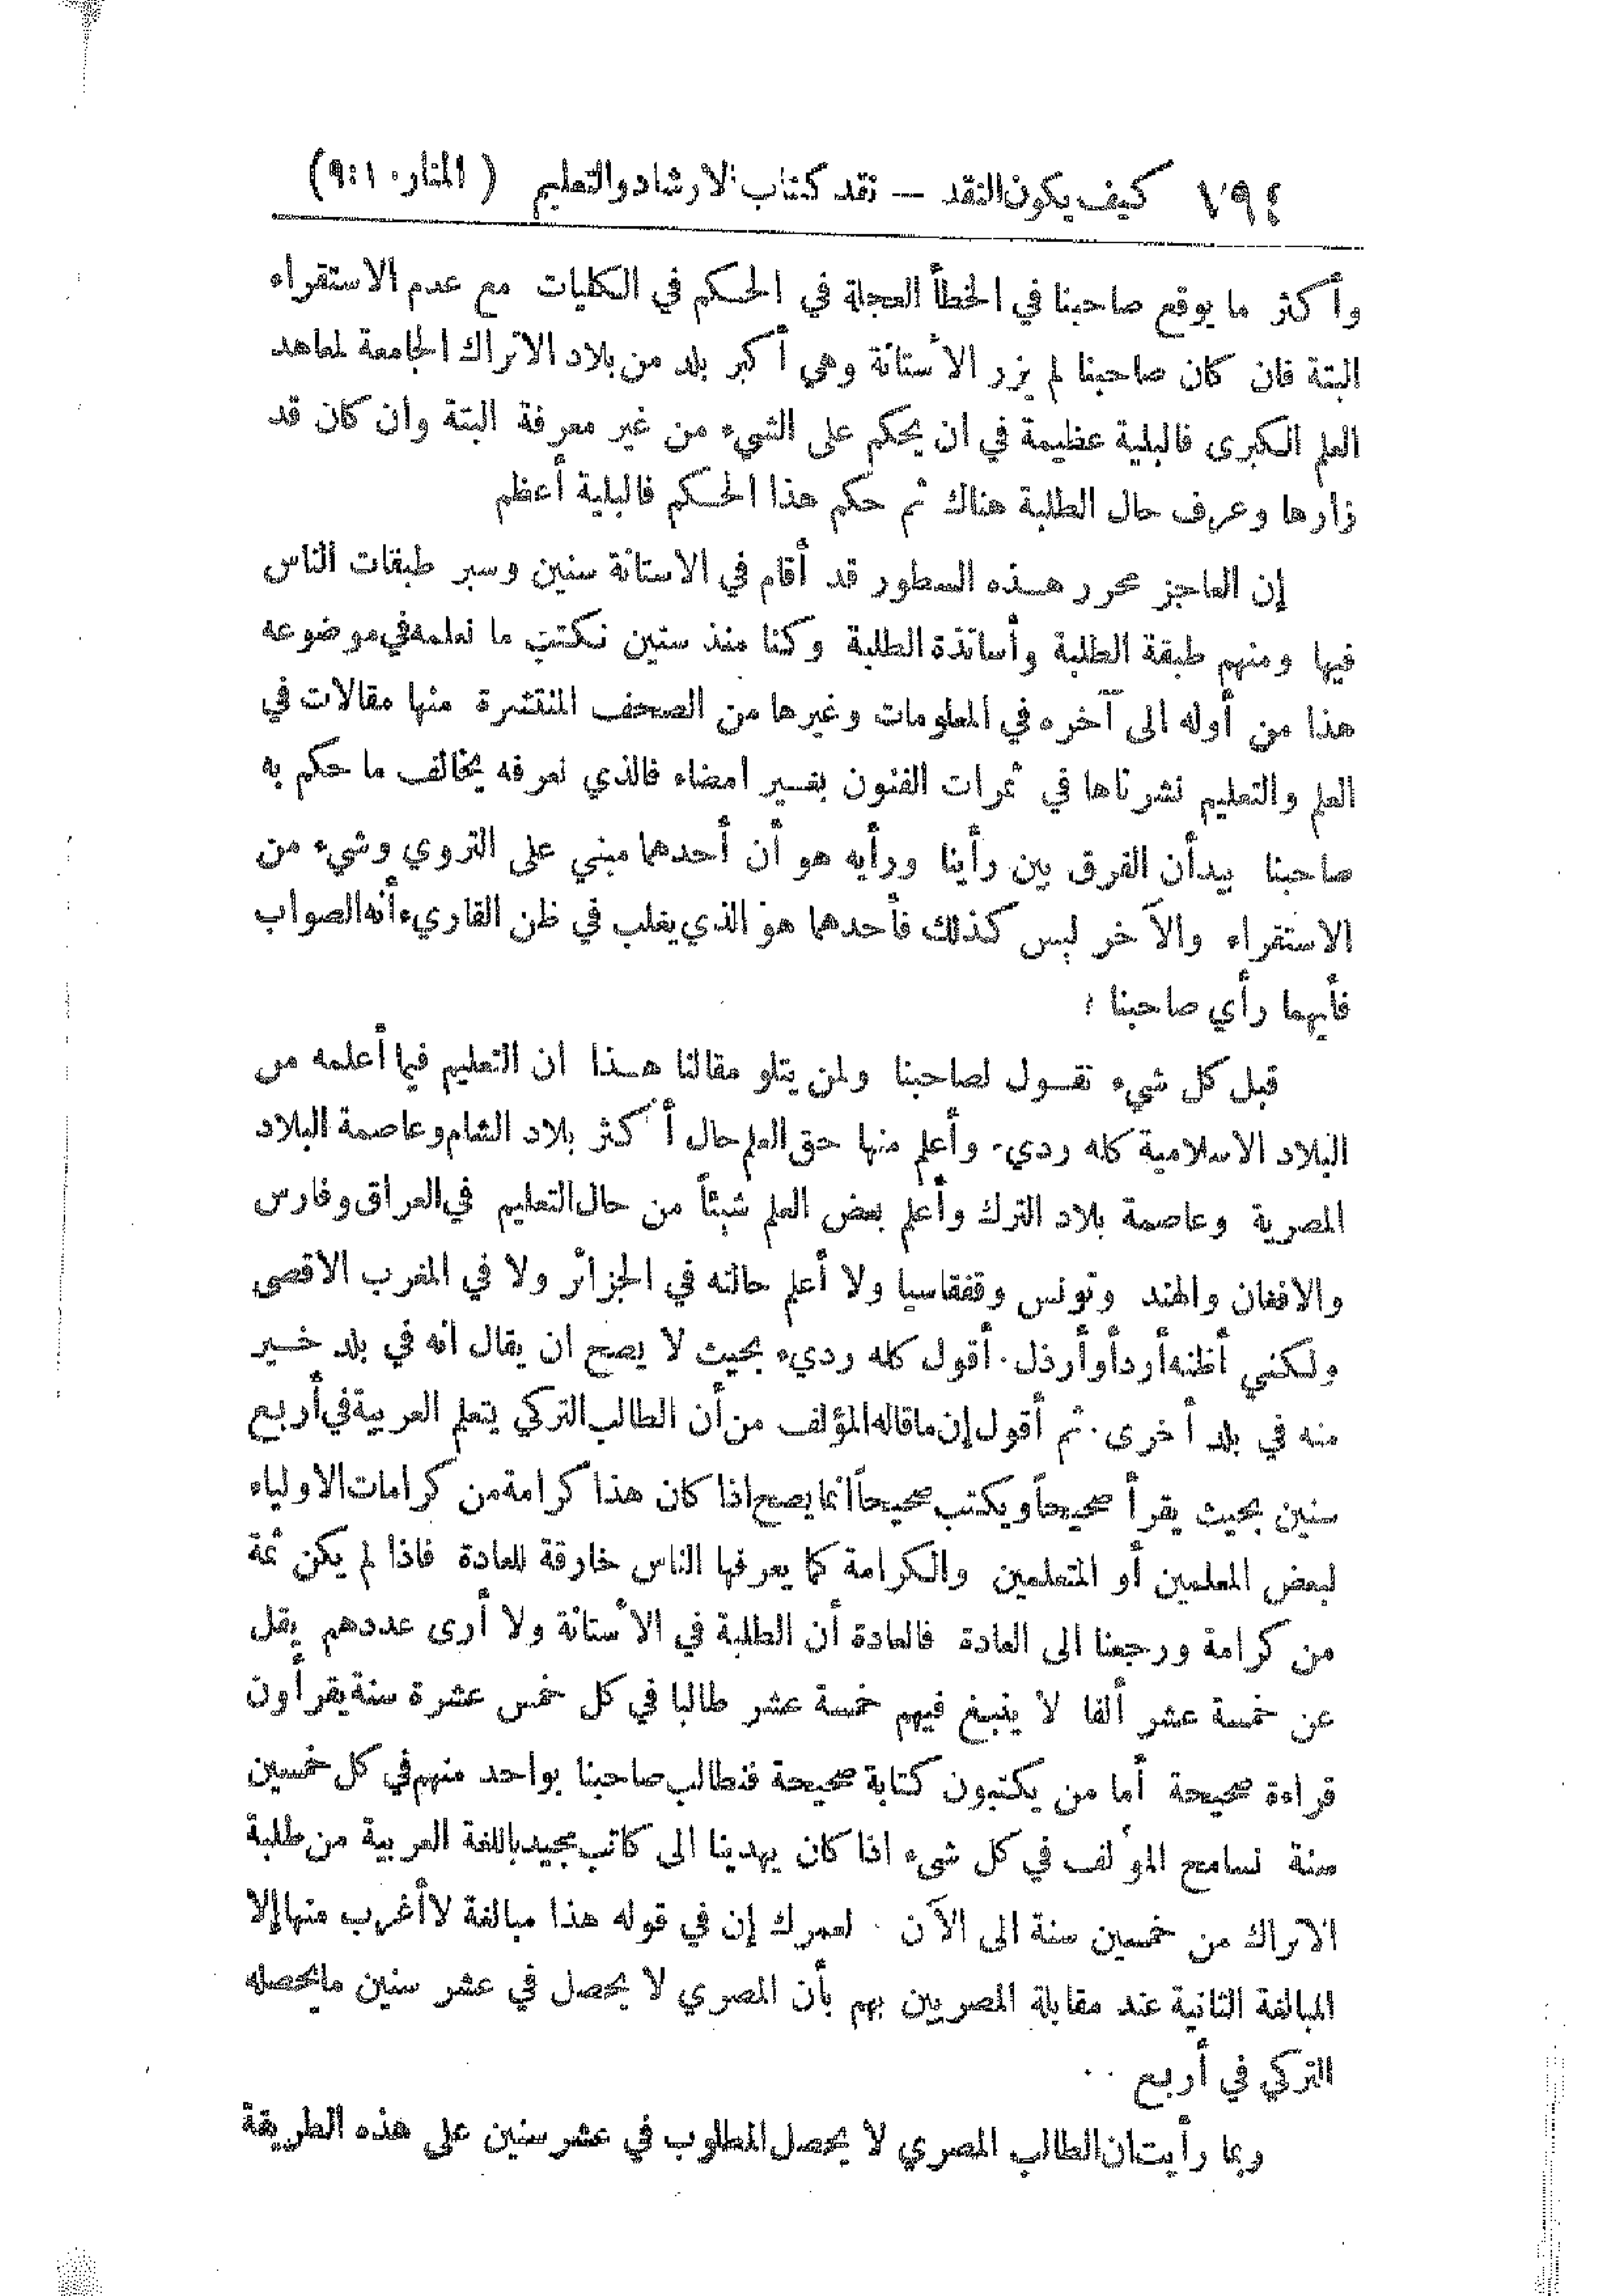 ٧٩٤ كيف يكون النقد — نقد كتاب الارشاد والتعليم ( المنار ٩:١٠)
وأكثر ما يوقع صاحبنا في الخطأ العجلة في الحكم في الكليات مع عدم الاستقراء
البتة فان كان صاحبنا لم يزر الاستانة وهي أكبر بلد من بلاد الاتراك الجامعة لمعاهد
العلم الكبرى فالبلية عظيمة في ان يحكم على الشيء من غير معرفة البتة وان كان قد
زارها وعرف حال الطلبة هناك ثم حكم هذا الحكم فالبلية أعظم
إن العاجز محرر هذه السطور قد أقام في الاستانة سنين وسبر طبقات الناس
فيها ومنهم طبقة الطلبة وأساتذة الطلبة وكنا منذ سنين نكتب ما نعلمه في موضوعه
هذا من أوله الى آخره في المعلومات وغيرها من الصحف المنتشرة منها مقالات في
العلم والتعليم نشرناها في ثمرات الفنون بغير امضاء فالذي نعرفه يخالف ما حكم به
صاحبنا بيد أن الفرق بين رأينا ورأيه هو أن أحدهما مبني على التروي وشيء من
الاستقراء والآخر ليس كذلك فأحدهما هو الذي يغلب في ظن القاريء أنه الصواب
فأيهما رأي صاحبنا ؟
قبل كل شيء نقول لصاحبنا ولمن يتلو مقالنا هذا ان التعليم فيما أعلمه من
البلاد الاسلامية كله رديء وأعلم منها حق العلم حال أكثر بلاد الشام وعاصمة البلاد
المصرية وعاصمة بلاد الترك وأعلم بعض العلم شيئاً من حال التعليم في العراق وفارس
والافغان والهند وتونس وقفقاسيا ولا أعلم حالته في الجزائر ولا في المغرب الاقصى
ولكني أظنه أردأ وأرذل. أقول كله رديء بحيث لا يصح ان يقال انه في بلد خير
منه في بلد أخرى. ثم أقول إن ما قاله المؤلف من أن الطالب التركي يتعلم العربية في أربع
سنين بحيث يقرأ صحيحاً ويكتب صحيحاً انما يصح اذا كان هذا كرامة من كرامات الاولياء
لبعض المعلمين أو المتعلمين والكرامة كما يعرفها الناس خارقة للعادة فاذا لم يكن ثمة
من كرامة ورجعنا الى العادة فالعادة أن الطلبة في الاستانة ولا أرى عددهم يقل
عن خمسة عشر ألفا لا ينبغ فيهم خمسة عشر طالبا في كل خمس عشرة سنة يقرأون
قراءة صحيحة أما من يكتبون كتابة صحيحة فنطالب صاحبنا بواحد منهم في كل خمسين
سنة نسامح المؤلف في كل شيء اذا كان يهدينا الى كاتب مجيد باللغة العربية من طلبة
الاتراك من خمسين سنة الى الآن . لعمرك إن في قوله هذا مبالغة لا أغرب منها إلا
المبالغة الثانية عند مقابلة المصريين بهم بأن المصري لا يحصل في عشر سنين ما يحصله
التركي في أربع . .
وبما رأيت ان الطالب المصري لا يحصل المطلوب في عشر سنين على هذه الطريقة